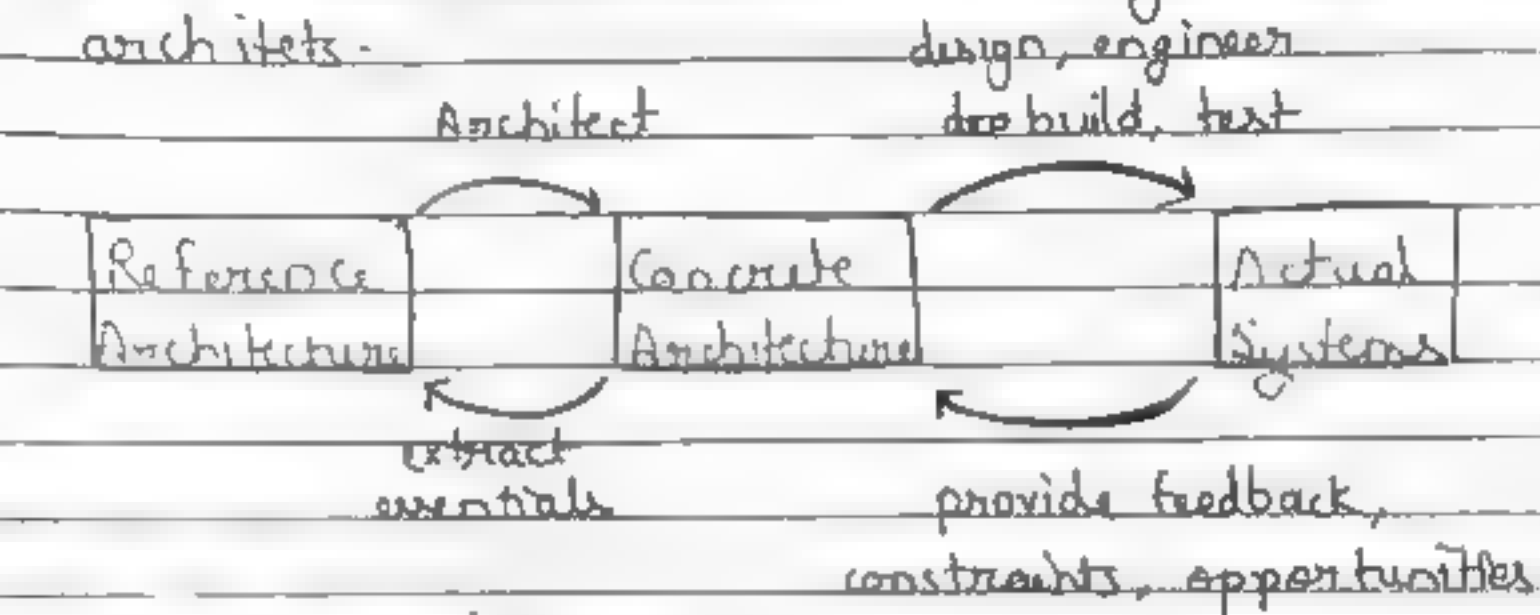 architets.
design, engineer
Architect
build, test
Reference
Architecture
Concrete
Architecture
Actual
Systems
extract
essentials
provide feedback,
constraints, opportunities